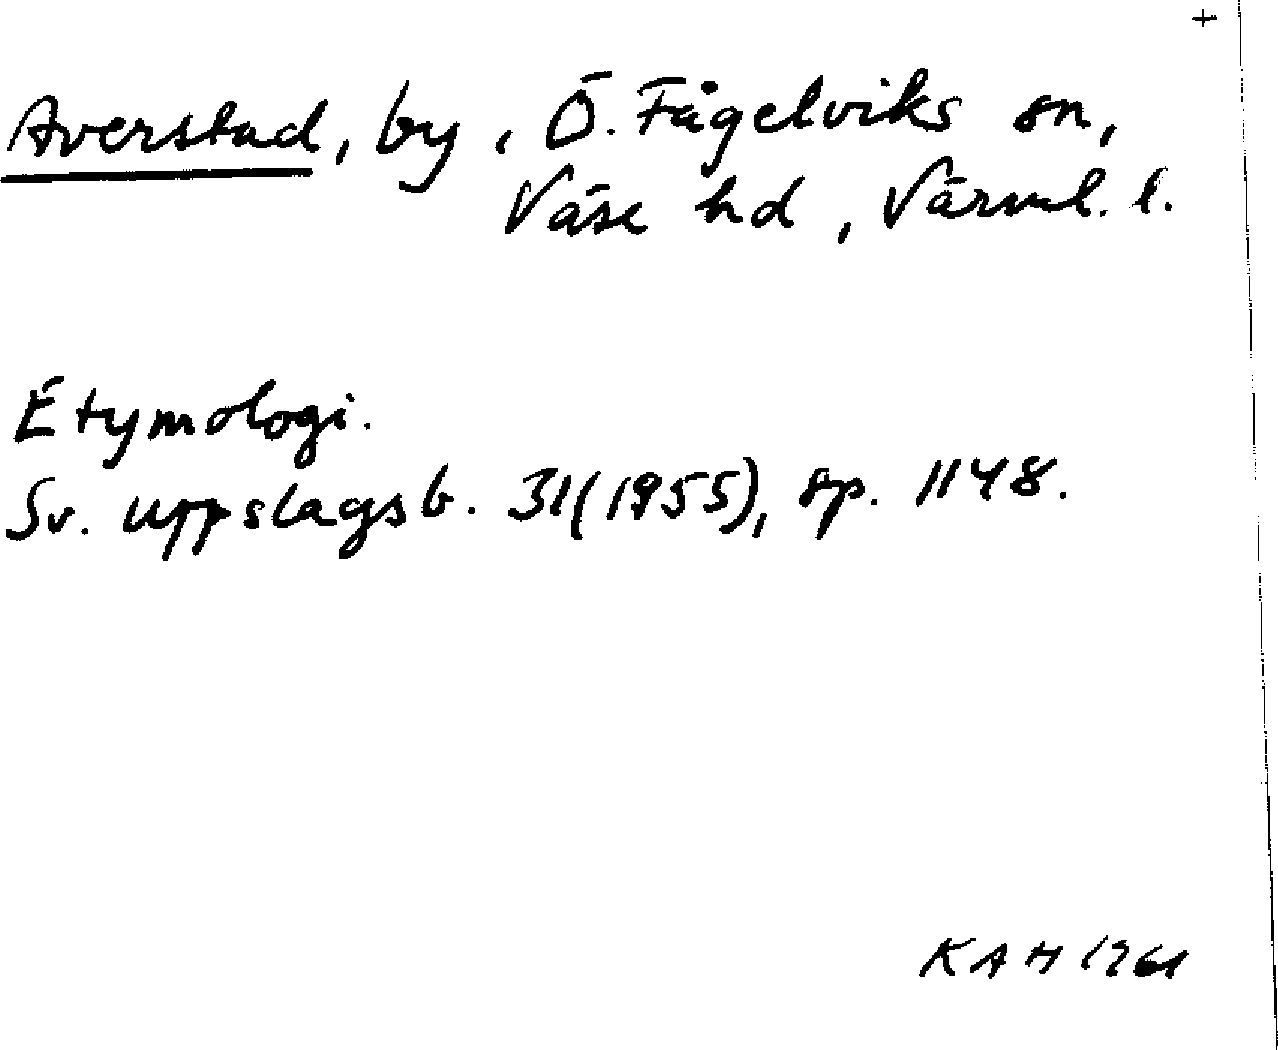 +
Averstad, by, Ö. Fågelviks sn,
Väse hd, Värml. l.
Etymologi.
Sv. uppslagsb. 31(1955), sp. 1148.
KAH 1961